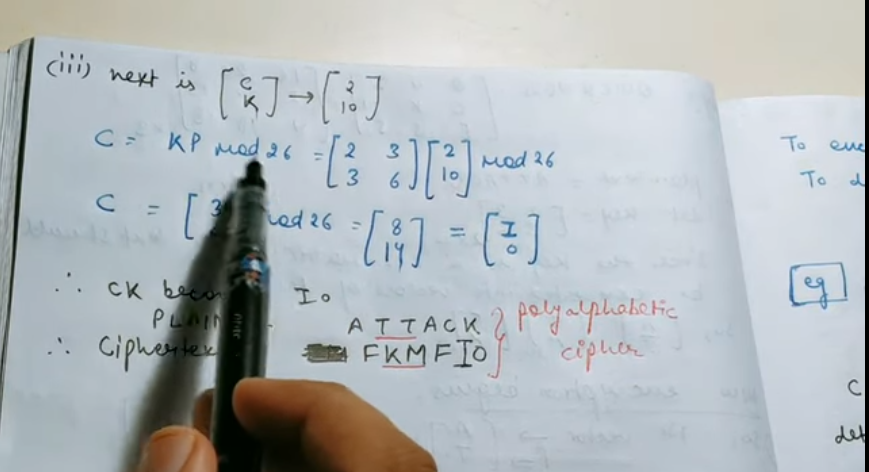 (iii) next is [C K] → [2 10]
C = KP mod 26 = [2 3 3 6] [2 10] mod 26
C = [3 mod 26 = [8 14] = [I O]
∴ CK beco IO
PLAIN ATTACK } polyalphabetic
∴ Ciphertex FKMFIO cipher
To
To d
eg
C
det